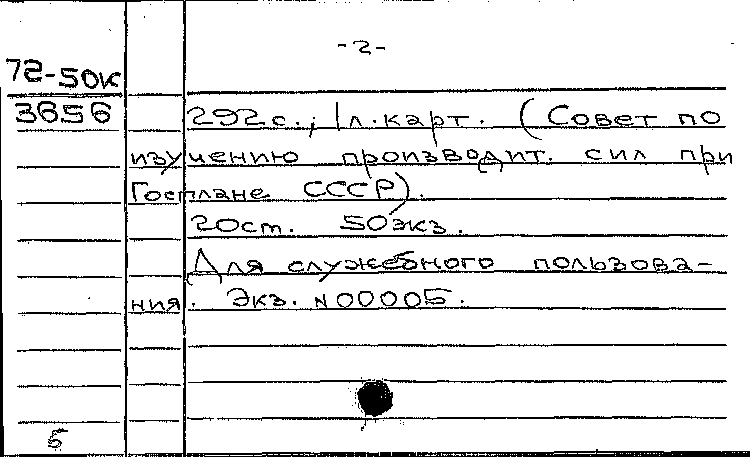 -2-
72-50к
3656
292с., 1л.карт. (Совет по
изучению производит. сил при
Госплане СССР).
20ст. 50экз.
Для служебного пользова-
ния. Экз. N00005.
5